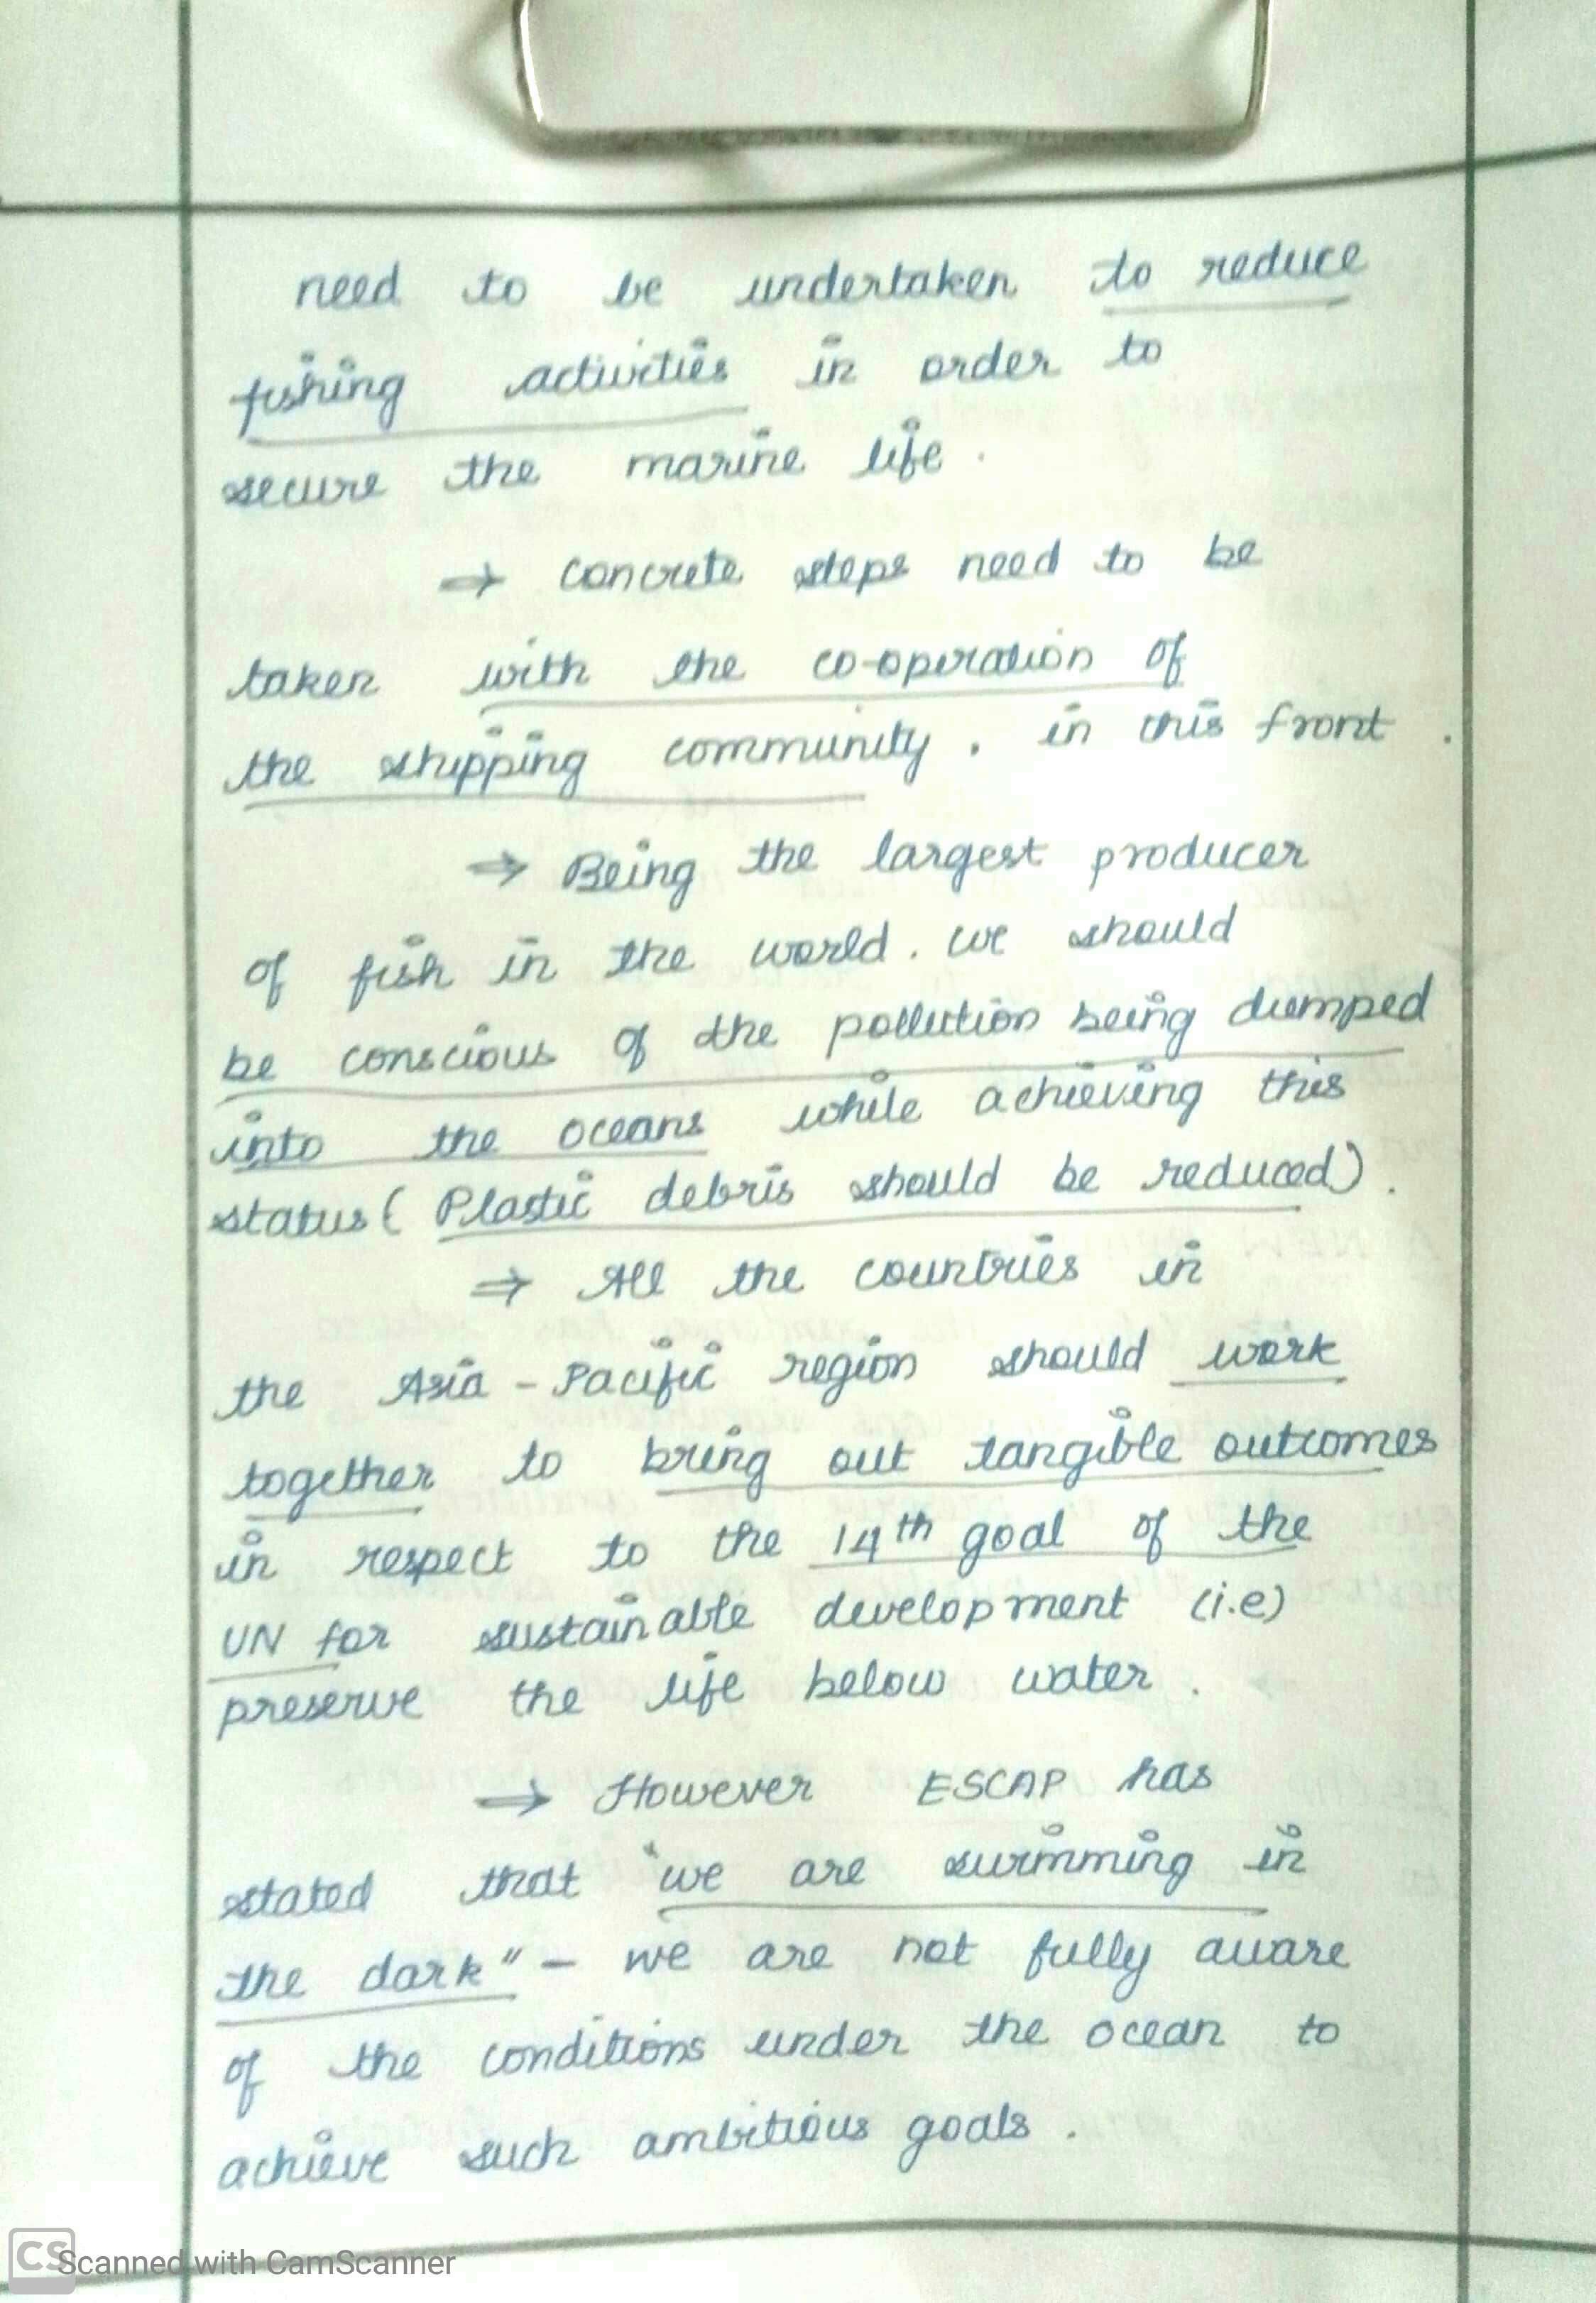 need to be undertaken to reduce
fishing activities in order to
secure the marine life.
⇒ concrete steps need to be
taken with the co-operation of
the shipping community. in this front.
⇒ Being the largest producer
of fish in the world. we should
be conscious of the pollution being dumped
into the oceans while achieving this
status (Plastic debris should be reduced).
⇒ All the countries in
the Asia-Pacific region should work
together to bring out tangible outcomes
in respect to the 14th goal of the
UN for sustainable development (i.e)
preserve the life below water.
⇒ However ESCAP has
stated that "we are swimming in
the dark" - we are not fully aware
of the conditions under the ocean to
achieve such ambitious goals.
CS Scanned with CamScanner